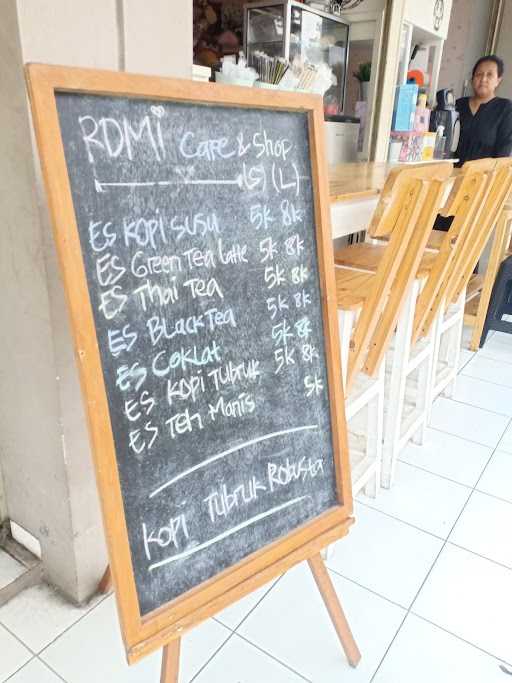 RDMi Cafe & Shop
(S) (L)
ES KOPI SUSU 5K 8K
ES Green Tea Latte 5K 8K
ES Thai Tea 5K 8K
ES Black Tea 5K 8K
ES Coklat 5K 8K
ES KOPI TUBRUK 5K 8K
ES Teh Manis 5K
KOPI TUBRUK Robusta